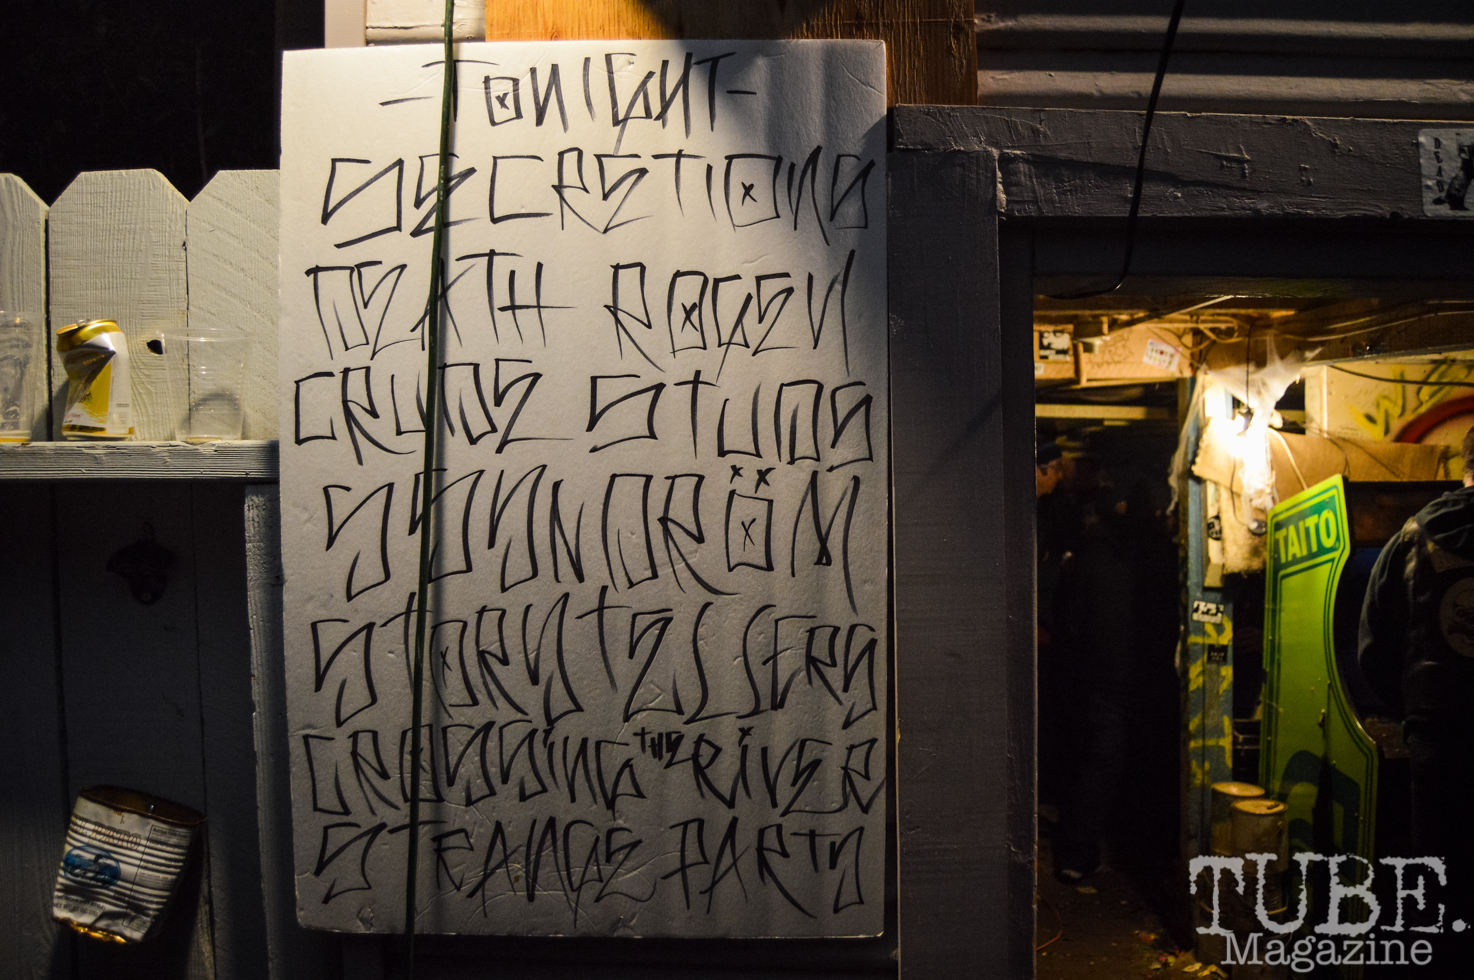 -TONIGHT-
SECRETIONS
DEATH ROGEN
CRUDE STUDS
SYSNDRÖM
STORYTELLERS
CROSSING THE RIVER
STRANGE PARTY
TAITO
TUBE.
Magazine